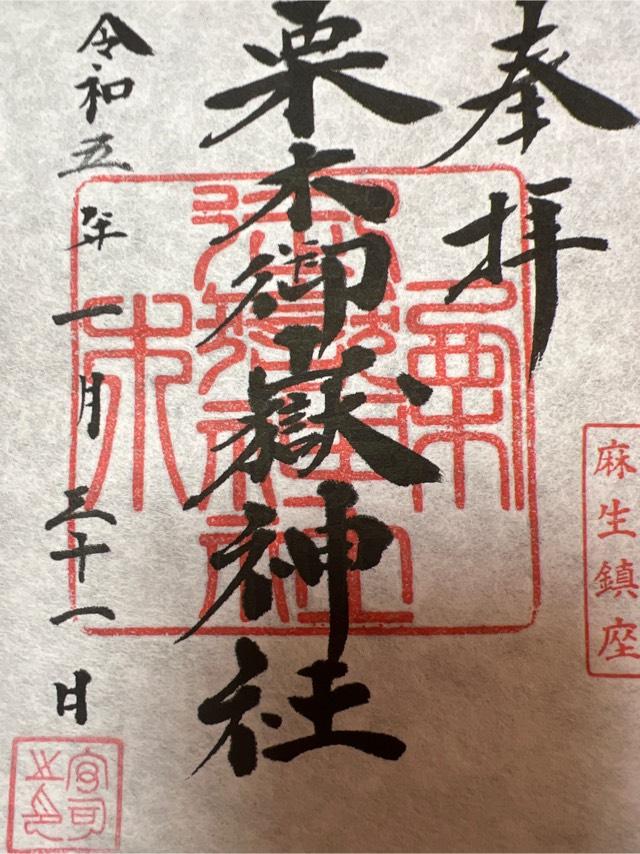 奉拝
麻生鎮座
栗木御嶽神社
令和五年一月三十一日
宮司之印